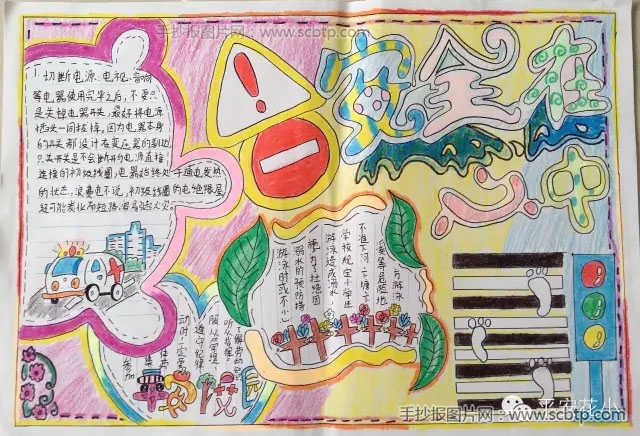 手抄报图片网:www.scbtp.com
安全在
心中
1. 切断电源.电视.音响
等电器使用完毕之后,不要只
是关掉电器开关,最好将电源
插头一同拔掉,因为电器本身
的开关都设计在变压器的副边,
只关开关是不会断开的,电源直接
连接的初级线圈,电器始终处于通电发热
的状态,浪费电不说,初级线圈的电绝缘层
方游泳
凌等危险地
不准下河、下塘、下
学校规定小学生
游泳造成溺水,
施,为了杜绝因
溺水的预防措
游泳时或不小心
听从指挥
服从管理
遵守纪律
动时,一定要
参加
校园
平安花小
手抄报图片网:www.scbtp.com